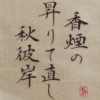 香煙の
昇りて直し
秋彼岸